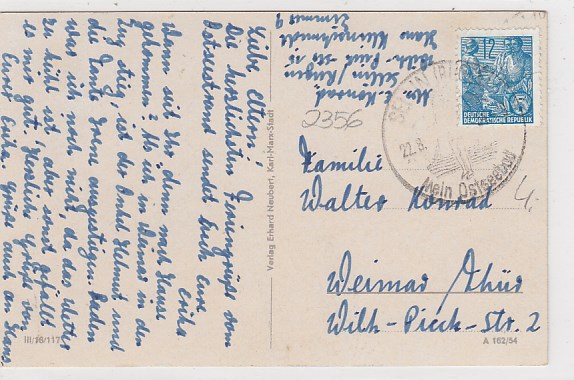 Liebe Eltern!
Die herzlichsten Feriengrüße vom
Ostseestrand sendet Euch eure
Wann seid Ihr denn nach Hause
gekommen? Als ich in Weimar in den
Zug stieg, ist der Onkel Helmut und
die Tante ausgestiegen. Baden
war ich noch nicht, da das Wetter
zu kühl ist, aber sonst gefällt
es mir gut. Herzliche Grüße von
Eurer Grüße auch an Hans
III/18/117
Verlag Erhard Neubert, Karl-Marx-Stadt
Konrad
Sellin/Rügen
Wilh.-Pieck-Str.
Hans
Zimmer 9
2356
12
DEUTSCHE
DEMOKRATISCHE REPUBLIK
5
SELLIN (RÜGEN)
22.8.
Dein Ostseebad
Familie
Walter Konrad
4.-
Weimar/Thür
Wilh-Pieck-Str. 2
A 162/54